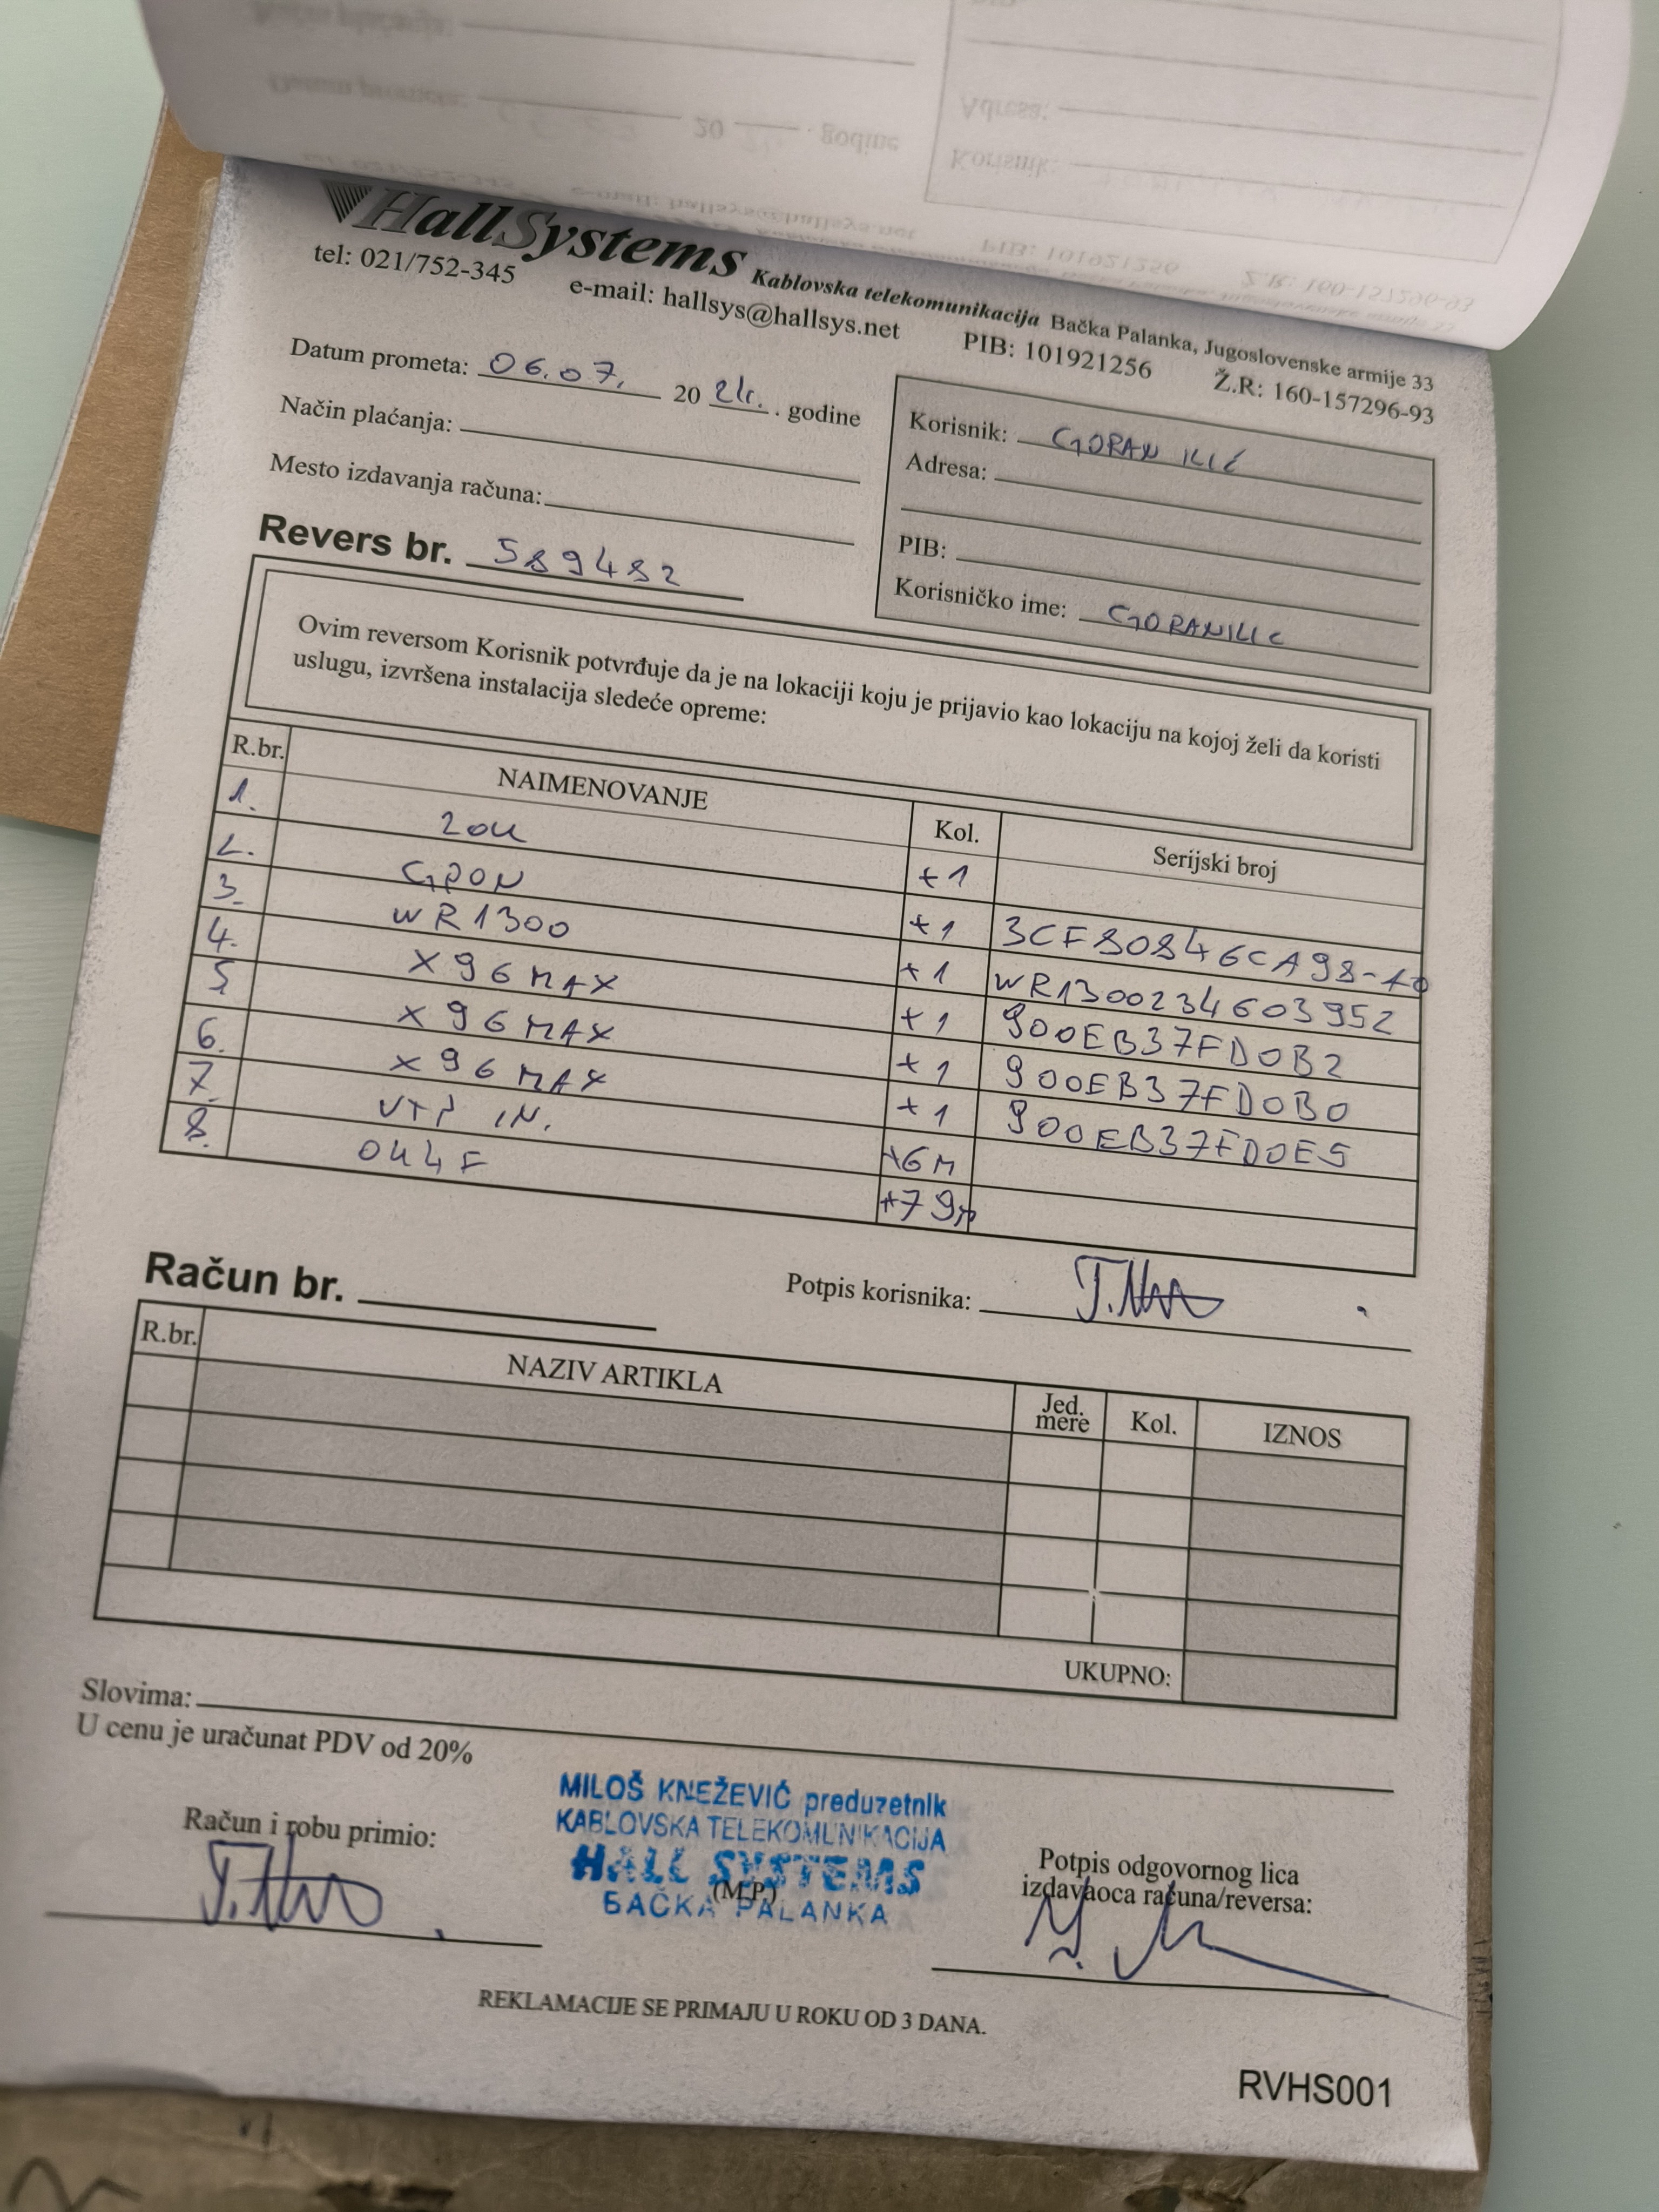 HallSystems Kablovska telekomunikacija Bačka Palanka, Jugoslovenske armije 33
tel: 021/752-345 e-mail: hallsys@hallsys.net PIB: 101921256 Ž.R: 160-157296-93
Datum prometa: 06.07. 2024. . godine
Način plaćanja:
Mesto izdavanja računa:
Korisnik: GORAN ILIĆ
Adresa:
PIB:
Korisničko ime: GORANILIC
Revers br. 589482
Ovim reversom Korisnik potvrđuje da je na lokaciji koju je prijavio kao lokaciju na kojoj želi da koristi
uslugu, izvršena instalacija sledeće opreme:
R.br. NAIMENOVANJE Kol. Serijski broj
1. ZOK +1
2. GPON +1 3CF80846CA98-10
3. WR1300 +1 WR1300234603952
4. X96MAX +1 900EB37FD0B2
5 X96MAX +1 900EB37FD0B0
6. X96MAX +1 900EB37FD0E5
7. UTP IN. +6M
8. OK4F +79M
Potpis korisnika:
Račun br.
R.br. NAZIV ARTIKLA Jed. mere Kol. IZNOS
UKUPNO:
Slovima:
U cenu je uračunat PDV od 20%
Račun i robu primio:
MILOŠ KNEŽEVIĆ preduzetnik
KABLOVSKA TELEKOMUNIKACIJA
HALL SYSTEMS
(M.P.)
BAČKA PALANKA
Potpis odgovornog lica
izdavaoca računa/reversa:
REKLAMACIJE SE PRIMAJU U ROKU OD 3 DANA.
RVHS001